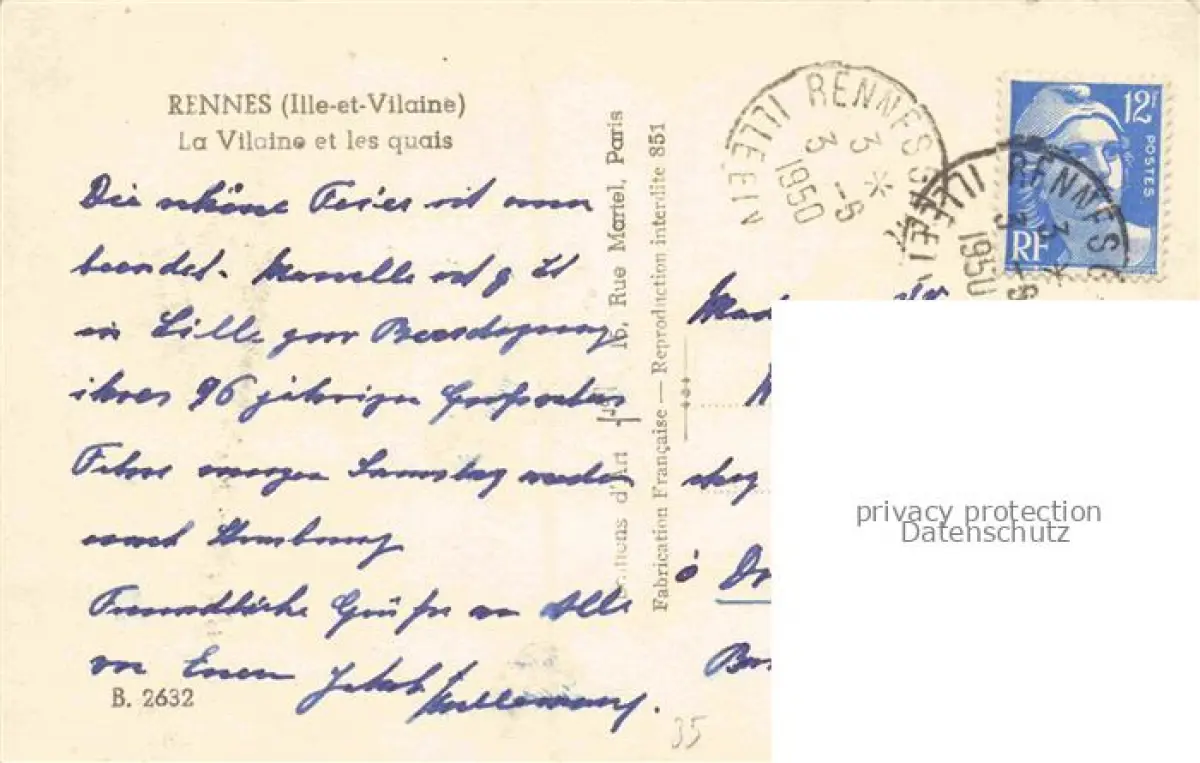 RENNES (Ille-et-Vilaine)
La Vilaine et les quais
Die schöne Feier ist nun
beendet. Marcelle ist z Zt
in Lille zur Beerdigung
ihres 96 jährigen Großvaters
Fahre morgen Samstag wieder
nach Strasbourg
Freundliche Grüße an Alle
von Euren Jakob
B. 2632
Editions d'Art 15, Rue Martel, Paris
Fabrication Française — Reproduction interdite 851
RENNES ILLE ET VILAINE
3 *
3 -6
1950
12F
POSTES
RF
RENNES ILLE ET
3 *
3 -6
1950
à
35
privacy protection
Datenschutz